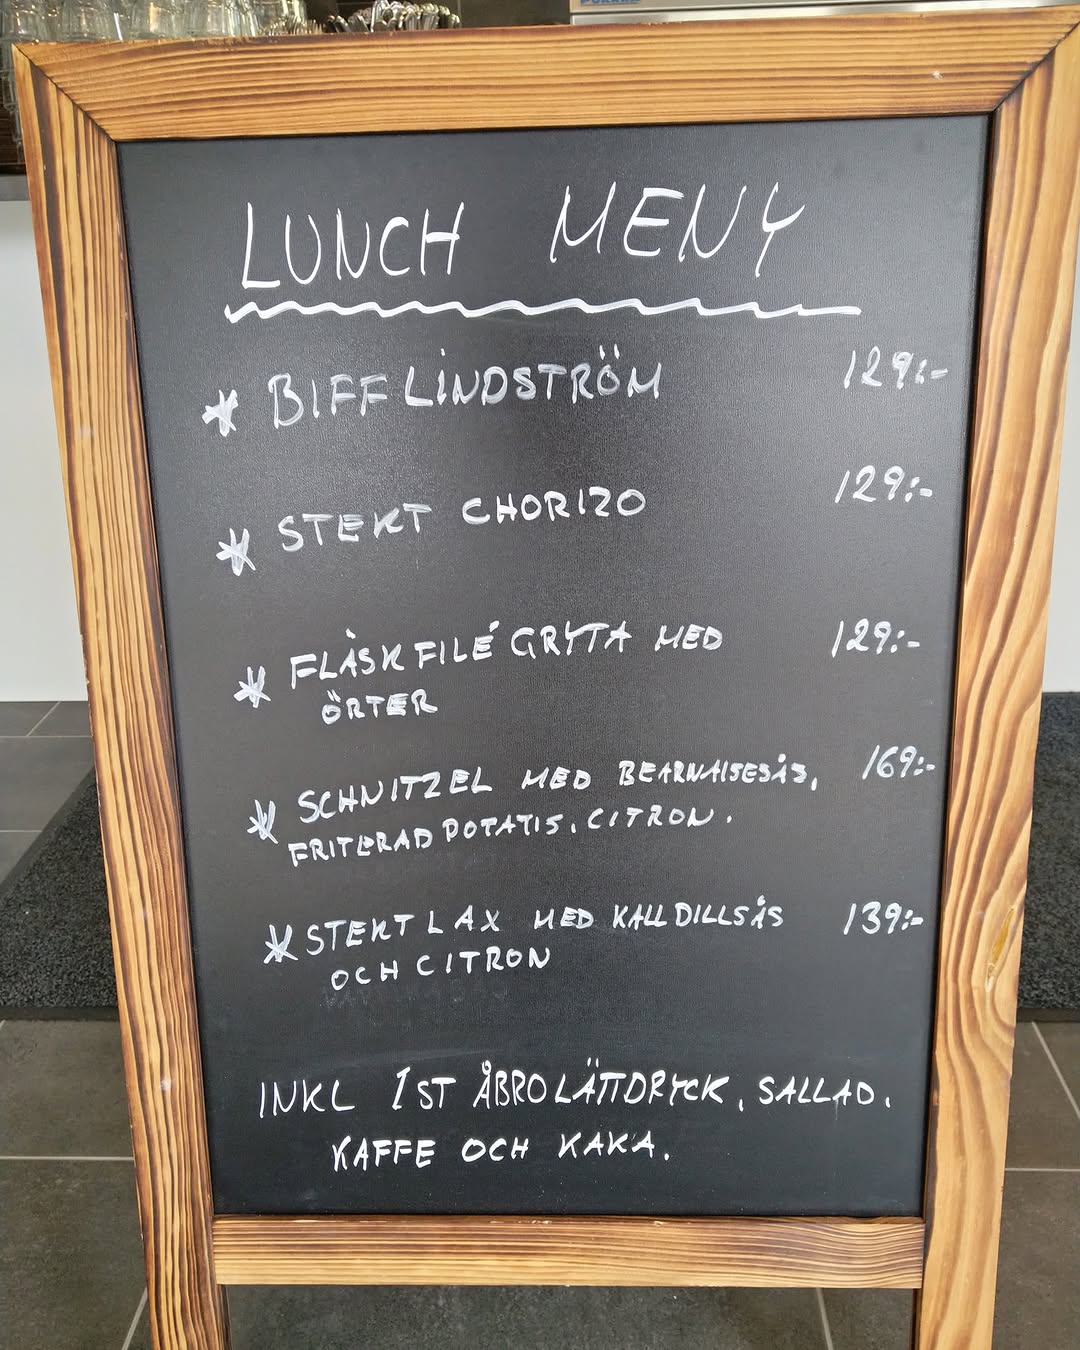 LUNCH MENY
* BIFF LINDSTRÖM 129:-
* STEKT CHORIZO 129:-
* FLÄSKFILÉ GRYTA MED 129:-
ÖRTER
* SCHNITZEL MED BEARNAISESÅS, 169:-
FRITERAD POTATIS, CITRON.
* STEKT LAX MED KALL DILLSÅS 139:-
OCH CITRON
INKL 1ST ÅBRO LÄTTDRYCK, SALLAD,
KAFFE OCH KAKA.